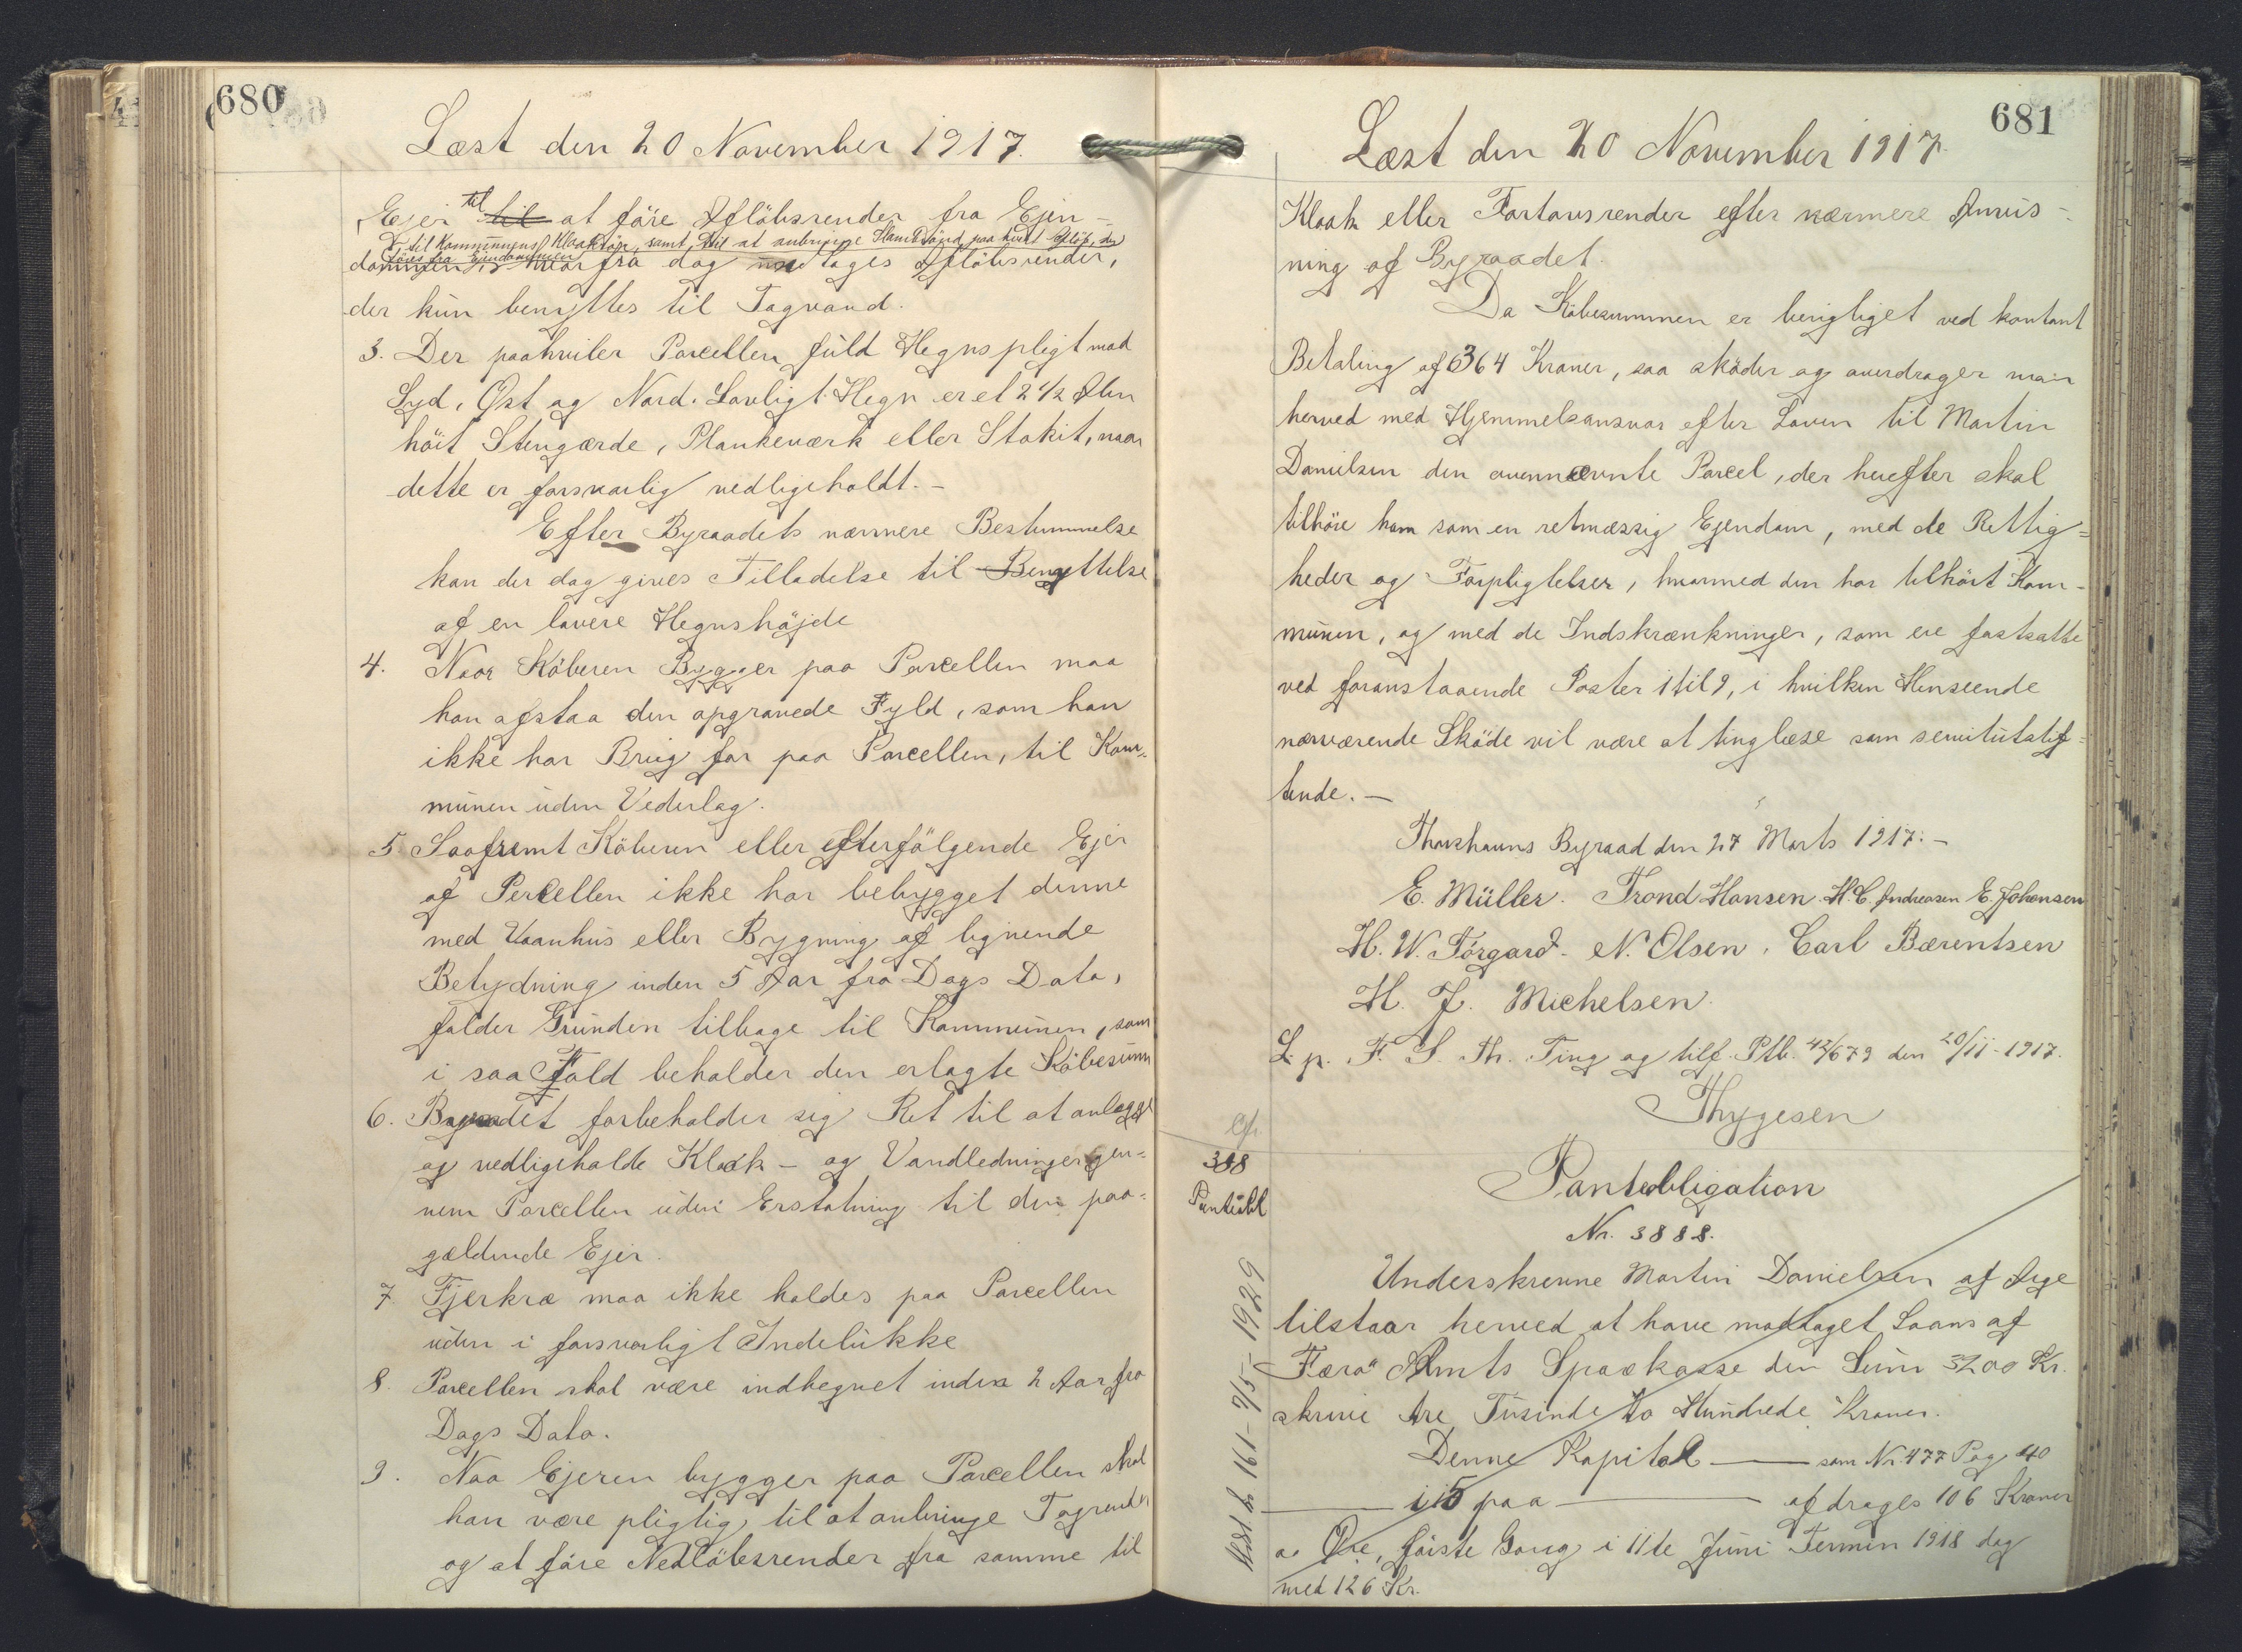 680
Læst den 20 November 1917.
Ejer til til at føre Afløbsrender fra Ejen-
til Kommunens Kloakrør, samt til at anbringe Slambrønd paa hvert Afløb, der
føres fra Ejendommen
dommen, hvorfra dog undtages Afløbsrender,
der kun benyttes til Tagvand.
3. Der paahviler Parcellen fuld Hegnspligt mod
Syd, Øst og Nord. Lovligt Hegn er et 2 1/2 Alen
höit Stengærde, Plankeværk eller Stakit, naar
dette er forsvarlig vedligeholdt.-
Efter Byraadets nærmere Bestemmelse
kan der dog gives Tilladelse til Benyttelse
af en lavere Hegnshöjde
4. Naar Köberen Bygger paa Parcellen maa
han afstaa den opgravede Fyld, som han
ikke har Brug for paa Parcellen, til Kom-
munen uden Vederlag.
5 Saafremt Köberen eller efterfölgende Ejer
af Percellen ikke har bebygget denne
med Vaanhus eller Bygning af lignende
Betydning inden 5 Aar fra Dags Dato,
falder Grunden tilbage til Kommunen, som
i saa Fald beholder den erlagte Köbesum
6. Byraadet forbeholder sig Ret til at anlægge
og vedligeholde Kloak- og Vandledninger gen-
nem Parcellen uden Erstatning til den paa-
gældende Ejer.
7. Fjerkræ maa ikke holdes paa Parcellen
uden i forsvarligt Indelukke
8. Parcellen skal være indhegnet inden 2 Aar fra
Dags Dato.
9. Naa Ejeren bygger paa Parcellen skal
han være pligtig til at anbringe Tagrender
og at före Nedlöbsrender fra samme til
681
Læst den 20 November 1917.
Kloak eller Fortovsrender efter nærmere Anvis-
ning af Byraadet.
Da Köbesummen er berigtiget ved kontant
Betaling af 364 Kroner, saa sköder og overdrager man
herved med Hjemmelsansvar efter Loven til Martin
Danielsen den ovennævnte Parcel, der herefter skal
tilhöre ham som en retmæssig Ejendom, med de Rettig=
heder og Forpligtelser, hvormed den har tilhört Kom-
munen, og med de Indskrænkninger, som ere fastsatte
ved foranstaaende Poster 1 til 9, i hvilken Henseende
nærværende Sköde vil være at tinglæse som servitutstif=
tende.-
Thorshavns Byraad den 27 Marts 1917.-
E. Müller. Trond Hansen. H.C. Andreasen E. Johansen
H. W. Törgard. N. Olsen. Carl Bærentsen
H. J. Michelsen.
L. p. F. S. Th. Ting og tilf. Ptb. 42/679 den 20/11-1917.
Thygesen
Pantobligation
Nr. 3888.
Underskrevne Martin Danielsen af Arge
tilstaar herved at have modtaget Laans af
Færø Amts Sparekasse den Sum 3200 Kr.
skrive tre Tusinde to Hundrede Kroner.
Denne Kapital — som Nr. 477 Pag 40
— i 15 paa — afdrages 106 Kroner
a. Øre, förste Gang i 11te Juni Termin 1918 dog
med 126 Kr.
318
Pantobl